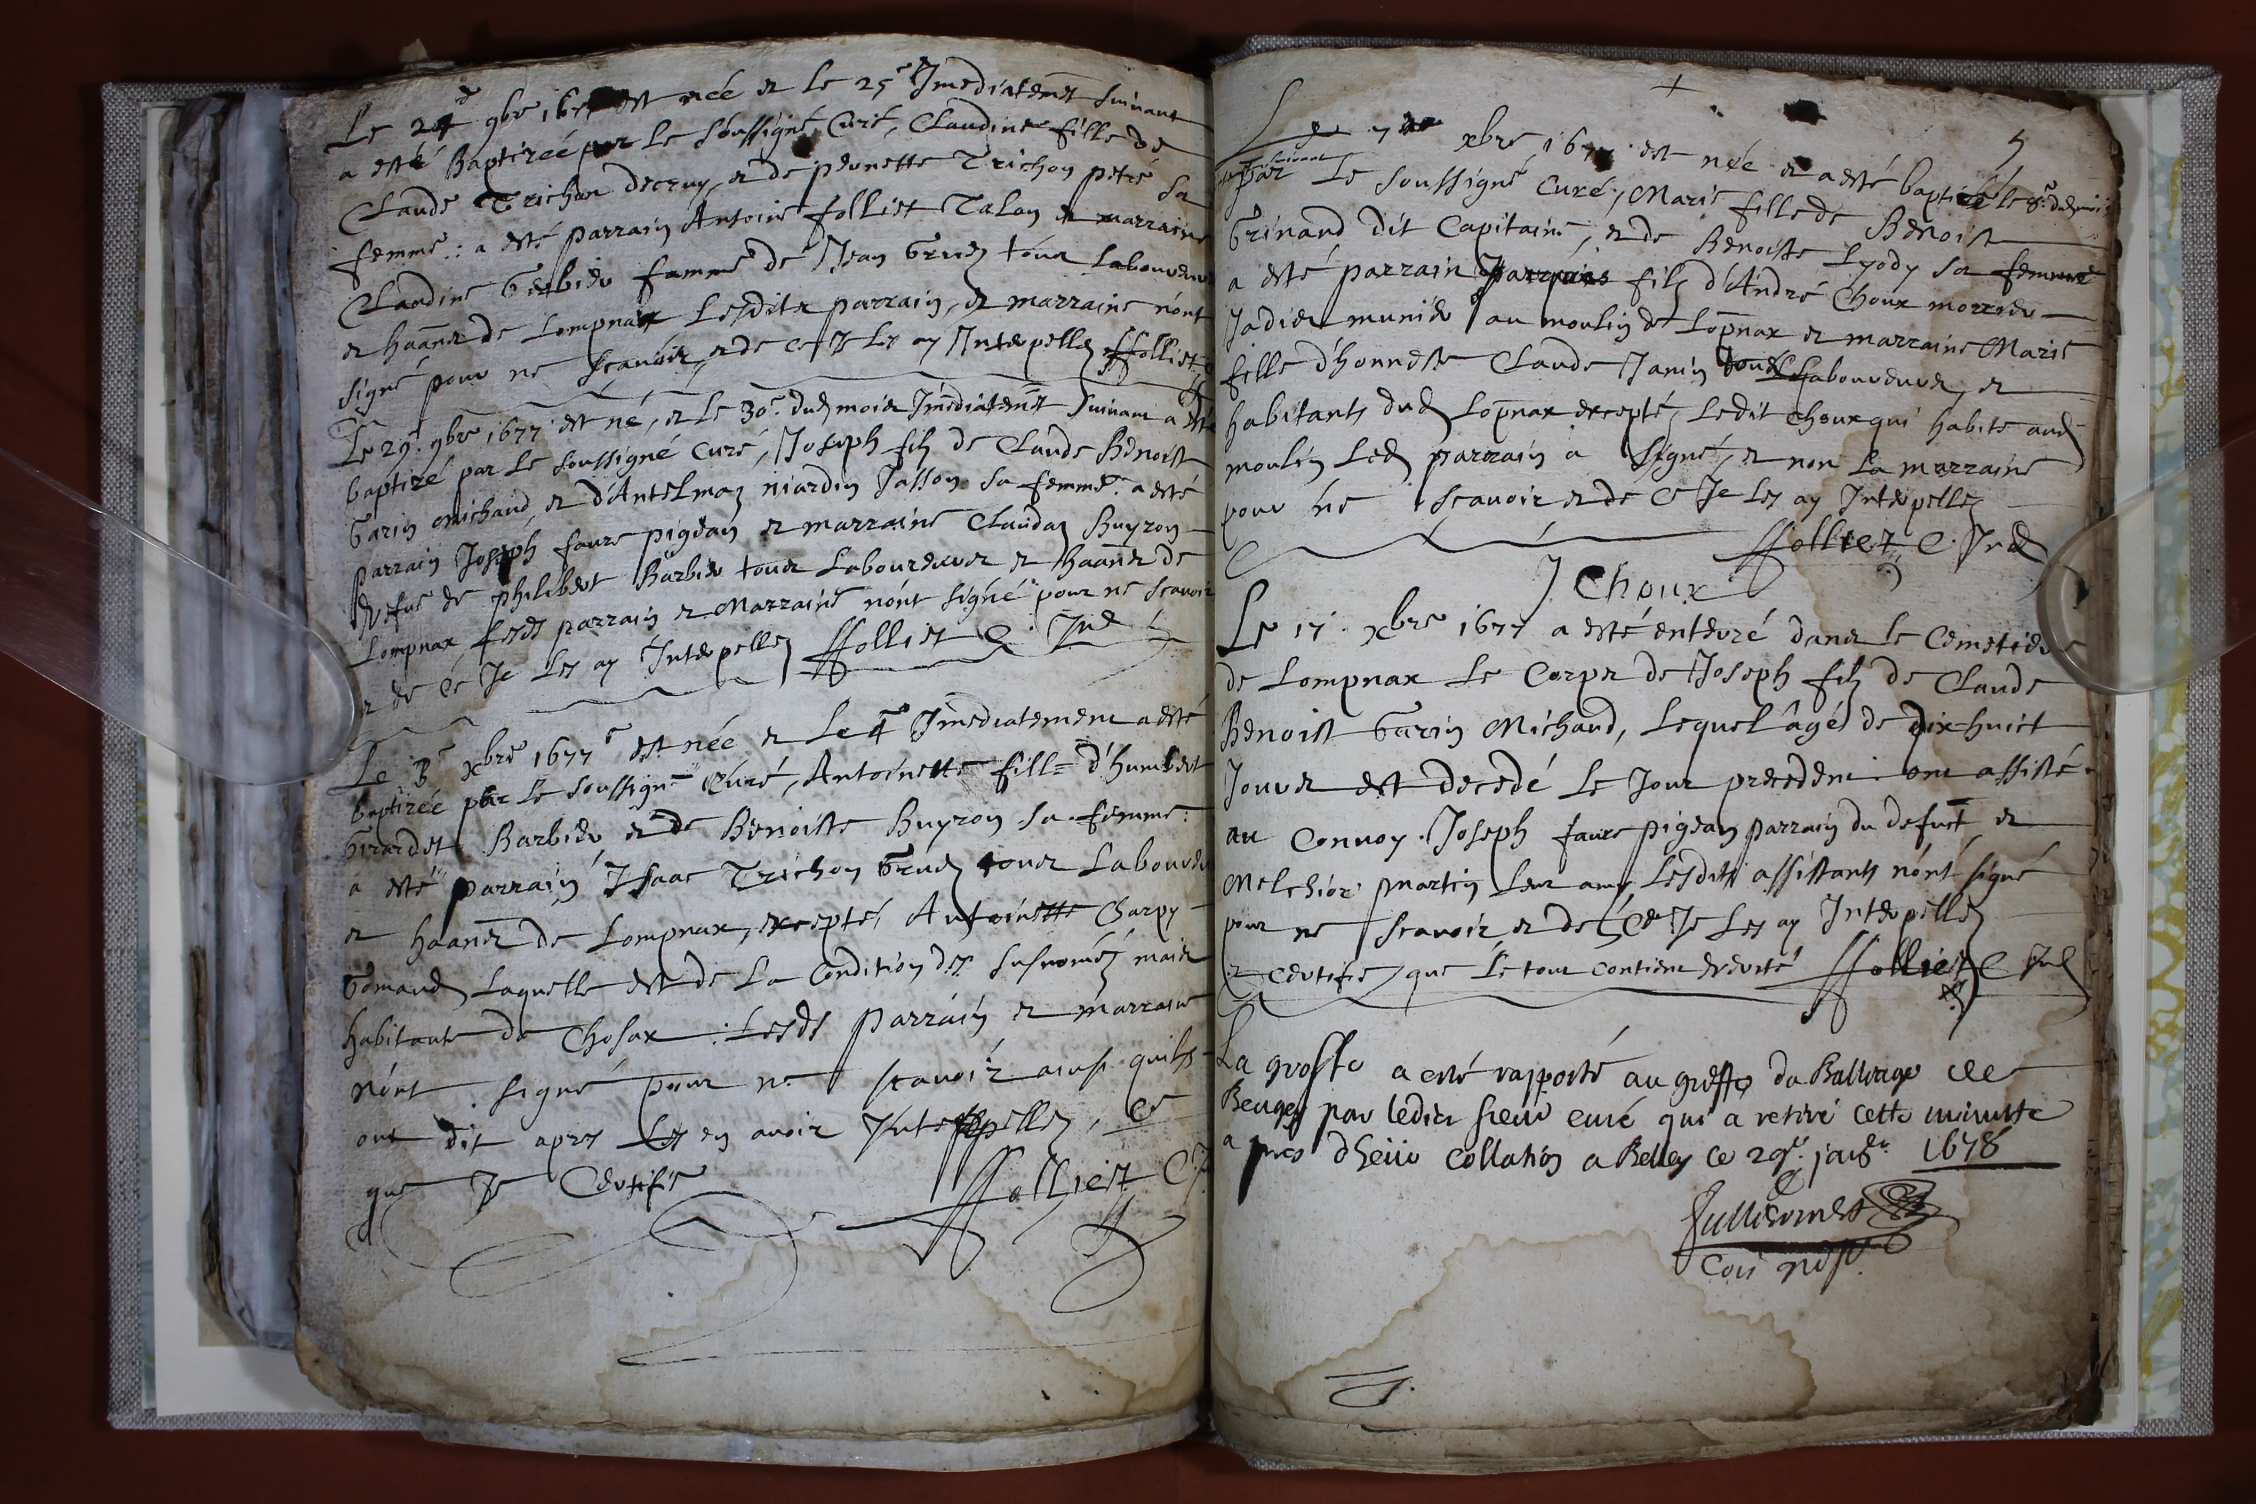 Le 24e 9bre 1677 est née et le 25e Imediatemēt suivant
a esté Baptizée par Le soussigné Curé, Claudine fille de
Claude Trichon decruy, et de pernette Trichon petre sa
femme : a esté parrain Antoine folliet Talon et marraine
Claudine Gerbier famme de Jean Gruez tous Laboureurs
et haānts de Lompnax Lesdits parrain, et marraine nont
signé pour ne scavoir, et de ce Je Les ay Interpellez ffolliet
Le 29. 9bre 1677 est né, et Le 30e. dud mois Imediatemēt suivant a esté
baptizé par Le soussigné Curé, Joseph filz de Claude Benoist
Garin Michaud, et d'Antelmaz niardin Jasson sa femme : a esté
parrain Joseph faure pigean et marraine Claudaz Buyron
vefve de philibert Barbier tous Laboureurs et haānts de
Lompnax Lesds parrain et Marraine nónt signé pour ne scavoir
et de ce Je Les ay Interpellez ffolliet C. Ind
Le 3e xbre 1677e est née et Le 4e Imediatement a esté
baptizée par Le soussigné Curé, Antoinette fille d'humbert
Girardet Barbier et de Benoiste Buyron sa femme :
a esté parrain Isaac Trichon Gruez tous Laboureurs
et haānts de Lompnax, excepté Antoinette Charpy
Gomaud Laquelle est de La Condition des susnoméz mais
habitante de Chosax : Lesds parrain et marraine
nónt signé pour ne scavoir ainsi quilz
ont dit apres Les en avoir Interpellez, Ce
que Je Certifie ffolliet C J
5
Le 7e xbre 1677 est née et a esté baptizé le 8e. du d mois
suivant
par Le soussigné Curé, Marie fille de Benoist
Grinand dit Capitaine, et de Benoiste Lyody sa femme
a esté parrain filz d'André Choux morrier
Jadis munier au moulin de Lōpnax et marraine Marie
fille d'honneste Claude Janin Laboureurs, et
habitants dud Lōpnax excepté Ledit Choux qui habite aud
moulin Led parrain a signé, et non La marraine
pour ne scavoir et de ce Je Les ay Interpellez
ffolliet C. Ind
J Choux
Le 17. xbre 1677 a esté enterré dans Le Cemetiere
de Lompnax Le Corps de Joseph filz de Claude
Benoist Garin Michaud, Lequel âgé de dix huict
Jours est decedé Le Jour precedent ont assisté
au Convoy Joseph faure pigean parrain du defunct et
Melchior Martin Leur amy Lesdits assistants nónt signé
pour ne scavoir, et de Ce Je Les ay Interpellez
et Certifie que Le tout contient verité ffolliet C Ind
La grosse a esté rapporté au greffe du Balliage de
Beugey par ledict sieur curé qui a retiré cette minutte
a pres dheüe collation a Belley ce 29e. janer 1678
Jullieromet